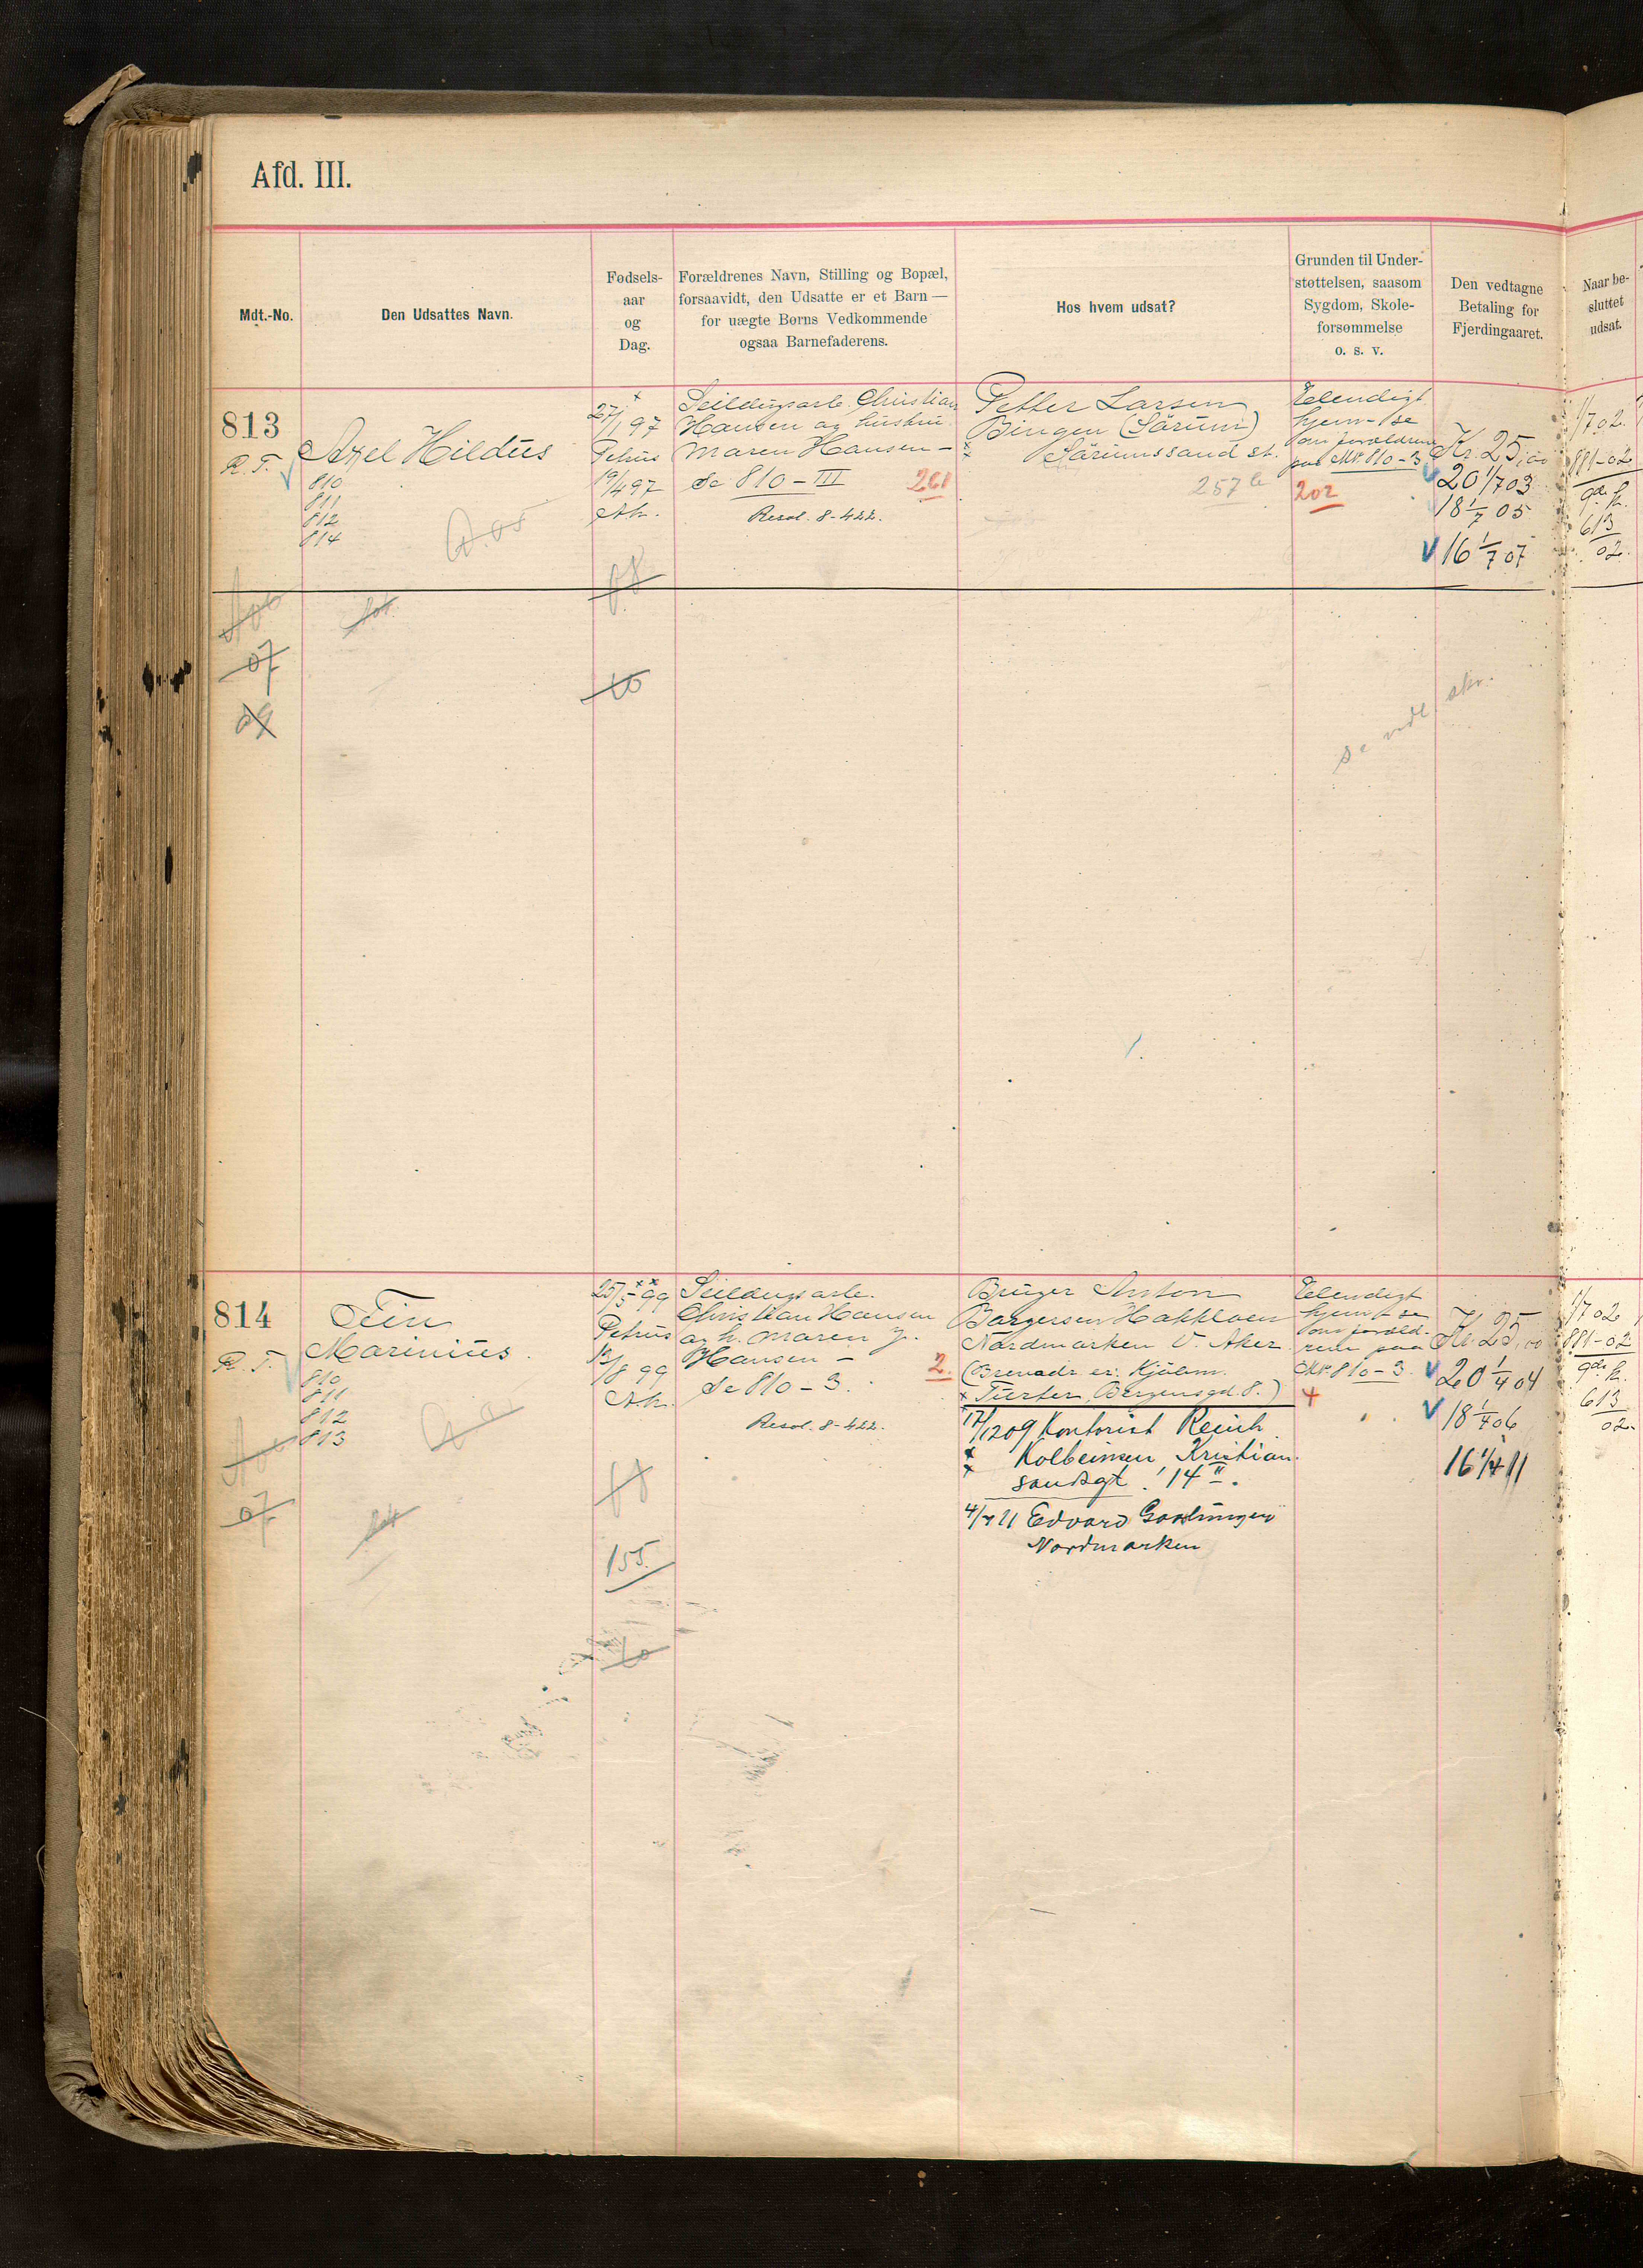 Afd. III.
Mdt.-No.
Den Udsattes Navn.
Fødsels-
aar
og
Dag.
Forældrenes Navn, Stilling og Bopæl,
forsaavidt, den Udsatte er et Barn —
for uægte Børns Vedkommende
ogsaa Barnefaderens.
Hos hvem udsat?
Grunden til Under-
støttelsen, saasom
Sygdom, Skole-
forsømmelse
o. s. v.
Den vedtagne
Betaling for
Fjerdingaaret.
Naar be-
sluttet
udsat.
813
R. T.
Axel Hildus
810
811
812
814
27/1 97
Petrus
19/4 97
Ak.
Seildugsarb. Christian
Hansen og hustru
Maren Hansen -
Se 810 - III
261
Resol. 8-422.
Petter Larsen
Bingen (Sörum)
Sörumssand st.
257 b
Elendigt
hjem - se
om forældrene
paa Mt. 810 - 3
202
Kr. 25,00
20 1/7 03
18 1/7 05
16 1/7 07
1/7 02.
881-02
613
02.
07
09
10
se vedl. skr.
814
R. T.
Fin
Marinius.
810
811
812
813
25/5 99
Petrus
13/8 99
Ak.
Seildugsarb.
Christian Hansen
og h. Maren J.
Hansen -
Se 810 - 3.
2.
Resol. 8-422.
Bruger Anton
Borgersen Hakkloen
Nordmarken V. Aker
(Brevadr. er: Kjöbm.
Tuerter, Bergensgd. 8.)
17/12 09 Kontorist Reich
Kolbeinsen, Kristian
sandsgt. 14 II.
4/4 11 Edvard
Nordmarken
Elendigt
hjem - se
om foræld-
rene paa
Mt. 810 - 3
4
Kr. 25,00
20 1/4 04
18 1/4 06
16 1/4 11
1/7 02
881-02
613
02.
07
155.
10